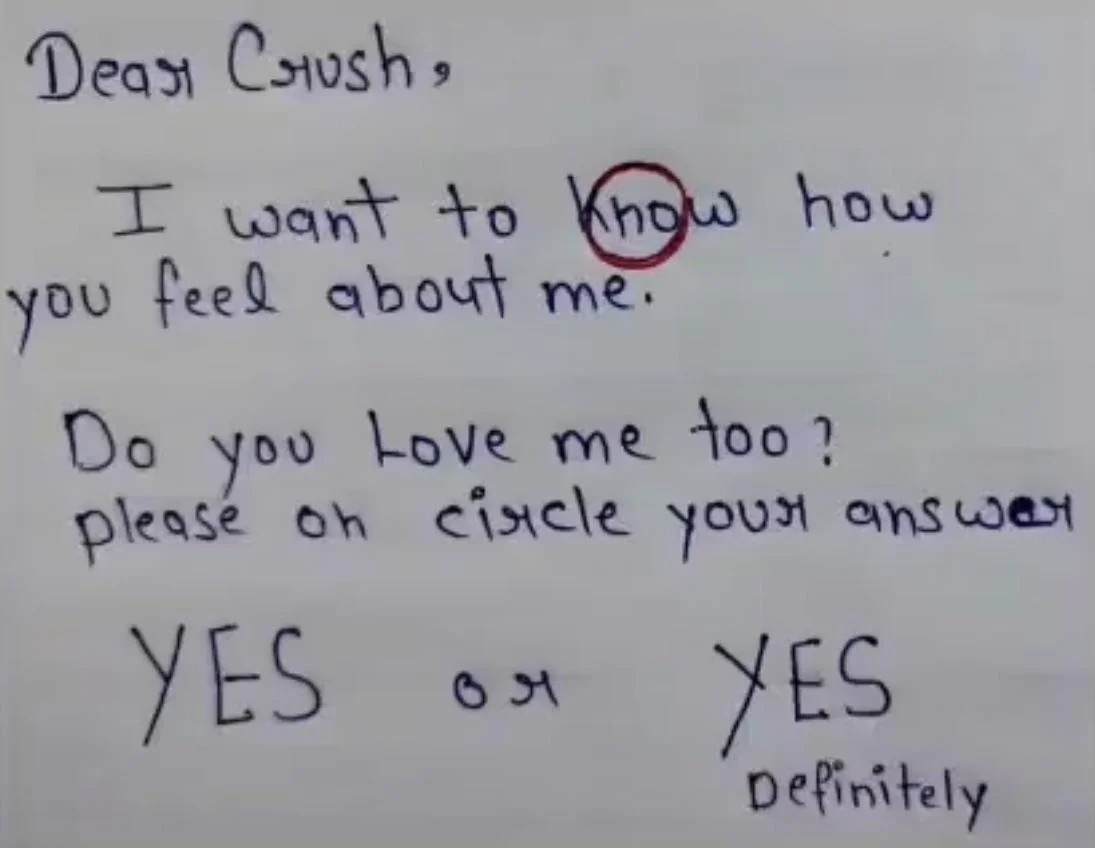 Dear Crush,
I want to know how
you feel about me.
Do you Love me too?
please on circle your answer
YES or YES
Definitely